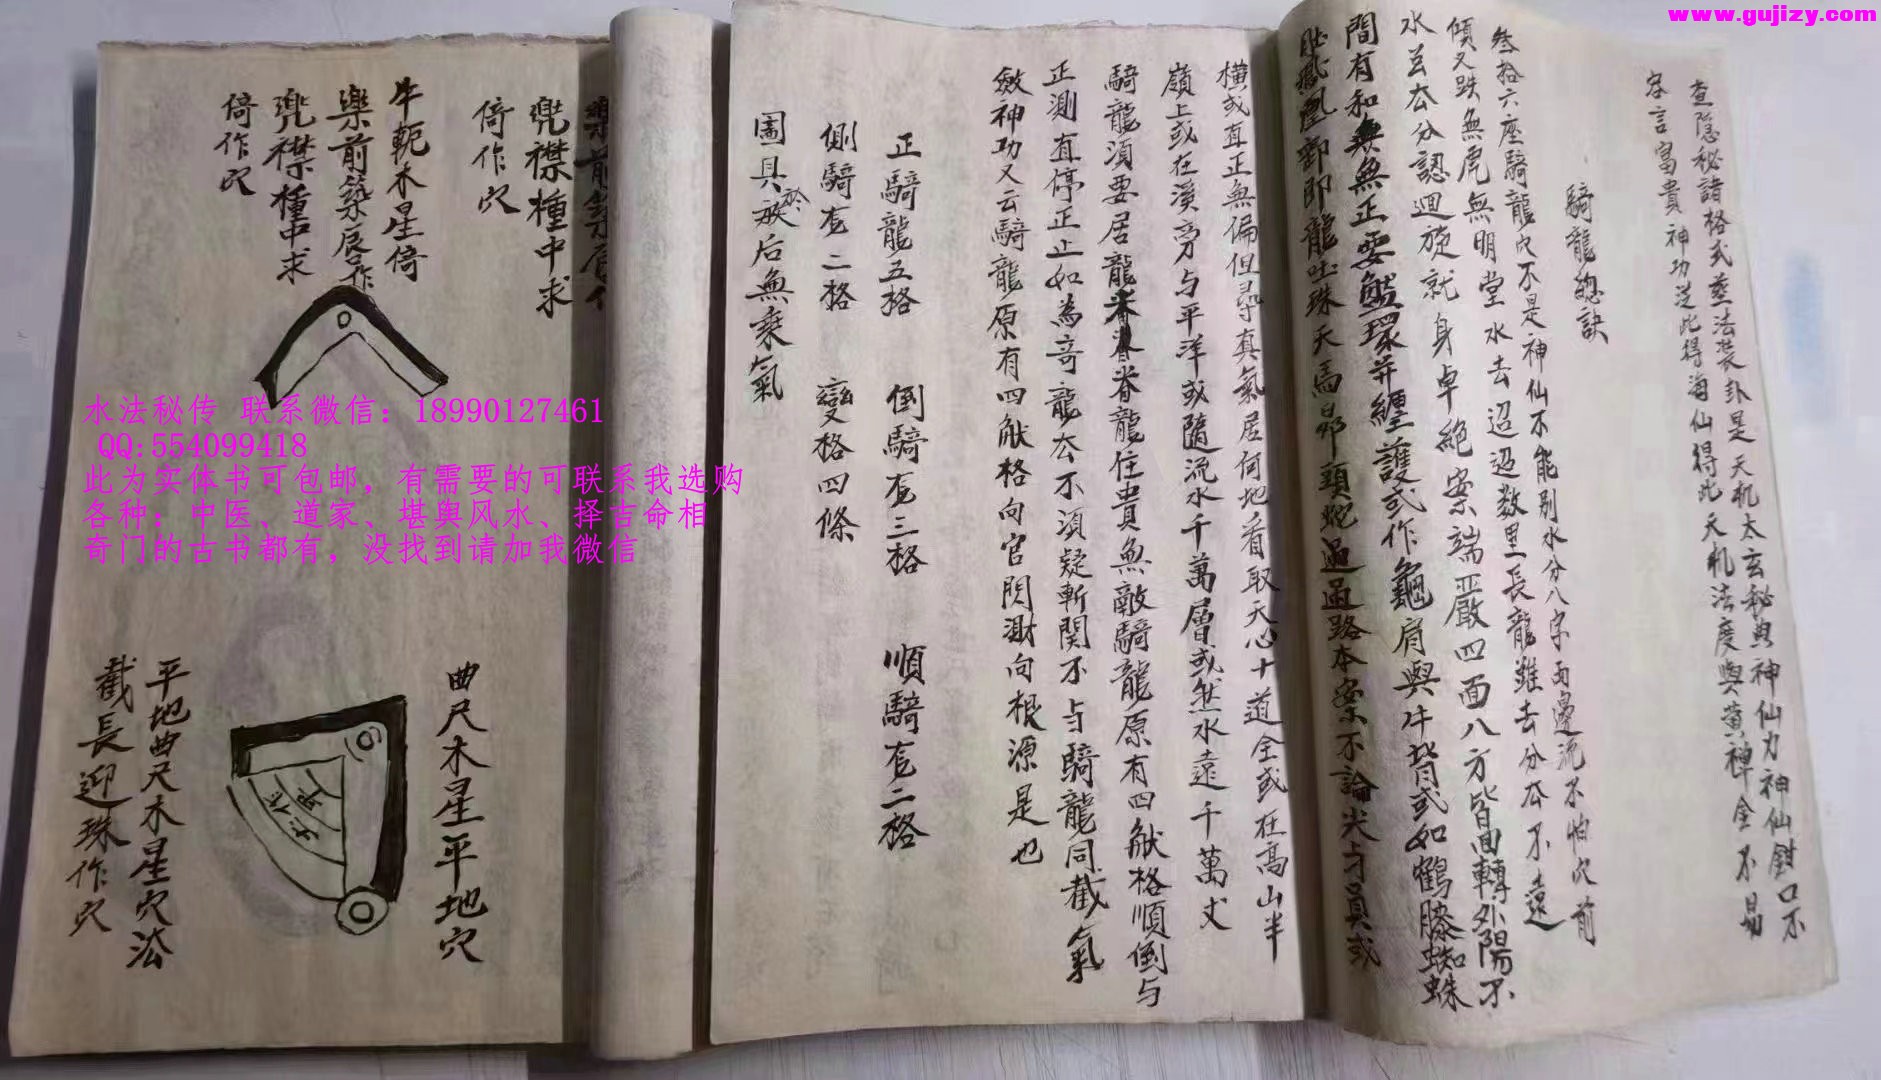 www.gujizy.com
查隱秘諸格式並法裝卦是天机太玄秘典神仙力神仙鉗口不
容言富貴神功從此得海仙得此天机法度與黃禅全不易
騎龍總訣
叁拾六座騎龍穴不是神仙不能别水分八字兩邊流不怕穴前
傾又跌無虎無明堂水去迢迢数里長龍雖去分本不遠
水玄本分認迴旋就身卓絶案端嚴四面八方皆回轉外陽不
間有和無正要盤環并纏護或作龜肩與牛背或如鶴膝蜘蛛
龍吐珠天馬昂頭蛇過路本案不論尖与員或
横或直正無偏但尋真氣居何地看取天心十道全或在高山半
嶺上或在溪旁与平洋或隨流水千萬層或然水遠千萬丈
騎龍須要居龍脊龍住貴無敵騎龍原有四般格順倒与
正測直停正正如為奇龍本不須疑斬関不与騎龍同截氣
斂神功又云騎龍原有四般格向官門測向根源是也
正騎龍五格 倒騎龙三格 順騎龙二格
側騎龙二格 變格四條
圖具於后無乘氣
樂前築唇作
兜襟種中求
倚作穴
牛軛木星倚
樂前築唇作
兜襟種中求
倚作穴
曲尺木星平地穴
平地曲尺木星穴法
截長迎珠作穴
水法秘传 联系微信：18990127461
QQ:554099418
此为实体书可包邮，有需要的可联系我选购
各种：中医、道家、堪舆风水、择吉命相
奇门的古书都有，没找到请加我微信